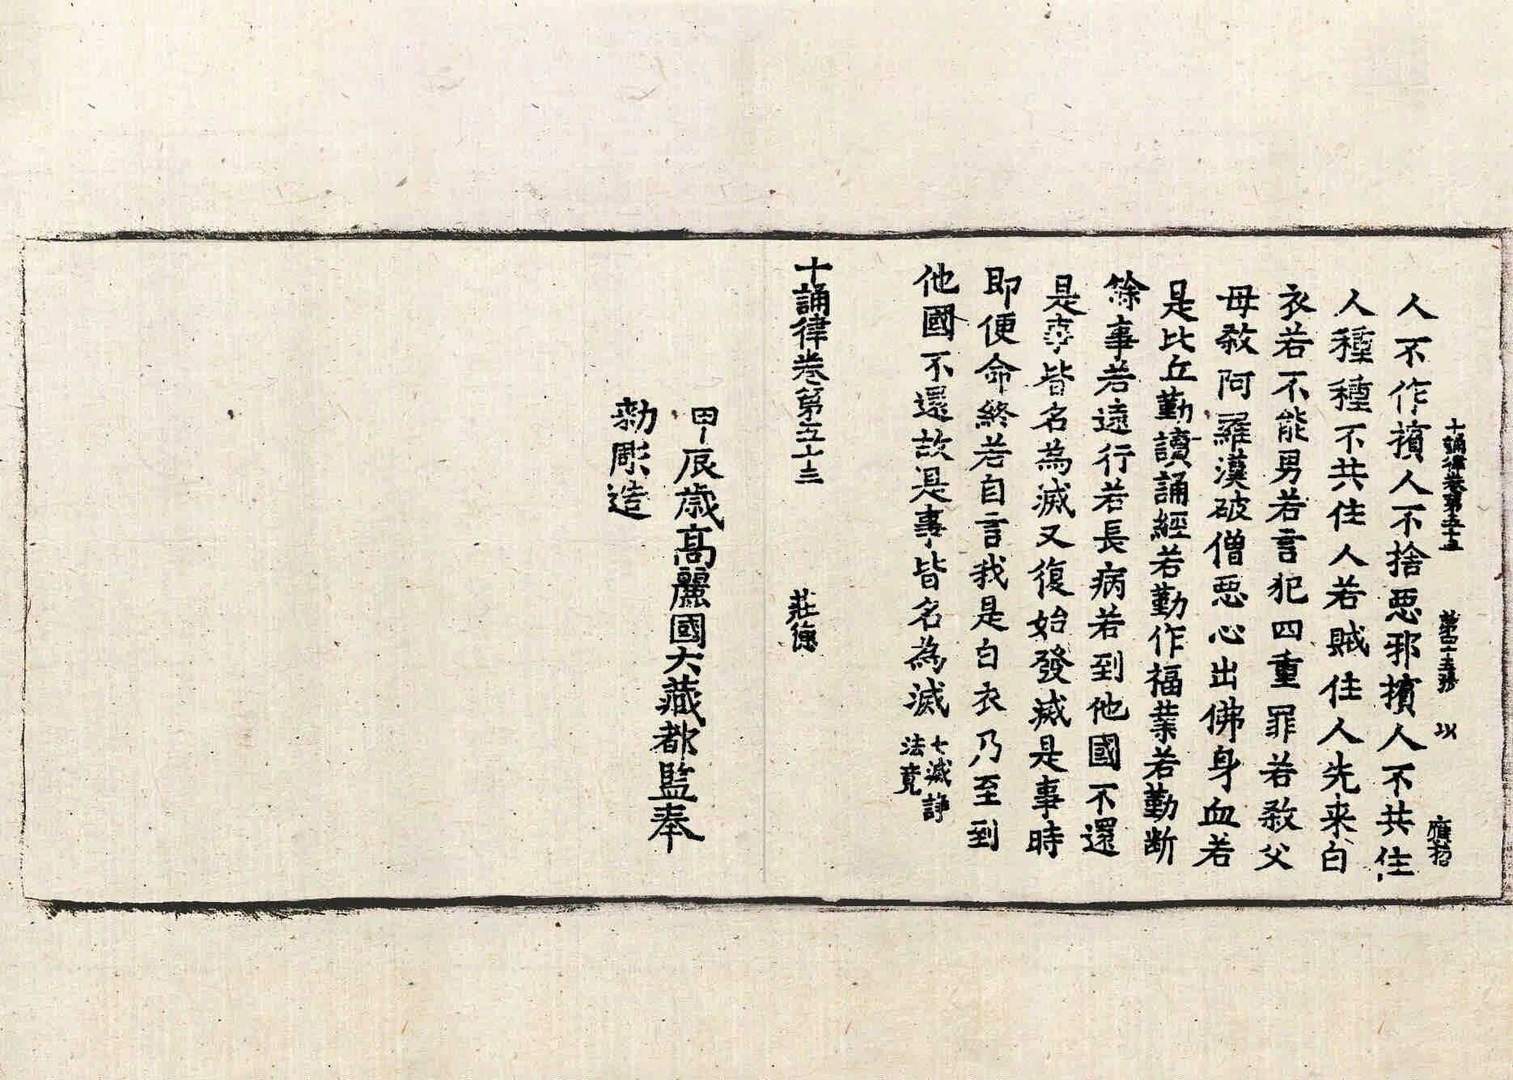 十誦律卷第五十三 第四十五張 以
人不作擯人不捨惡邪擯人不共住
人種種不共住人若賊住人先来白
衣若不能男若言犯四重罪若殺父
母殺阿羅漢破僧惡心出佛身血若
是比丘勤讀誦經若勤作福業若勤断
餘事若遠行若長病若到他國不還
是事皆名為滅又復始發滅是事時
即便命終若自言我是白衣乃至到
他國不還故是事皆名為滅 七滅諍
法竟
十誦律卷第五十三 莊德
甲辰歳高麗國大藏都監奉
勅彫造